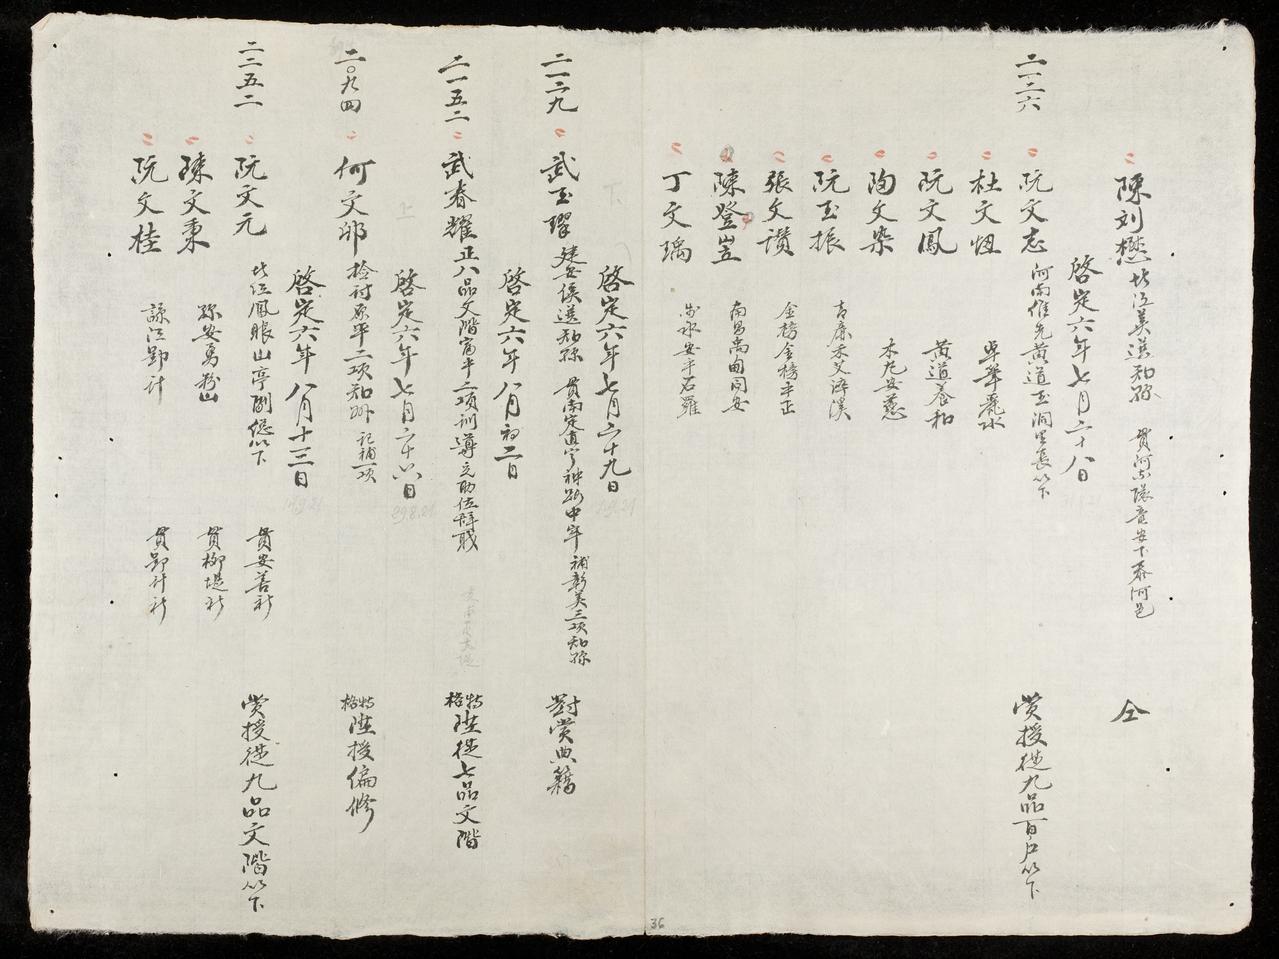 陳刘懋 北江美遠知縣 貫河東環竜安下泰河邑 仝
啓定六年七月二十八日
二一二六 阮文志 河南維先黄道玉洞里長以下 賞授從九品百户以下
杜文恒 卓華麗水
阮文鳳 黄道養和
陶文染 木丸安慈
阮玉振 青廉木义浮溪
張文讚 金榜金榜平正
陳登豈 南昌禹甸同安
丁文瑀 安平石羅
啓定六年七月二十九日
二一二九 武玉璻 建安侯選知縣 貫南定直寧神路中牢 補彰美三項知縣 對賞典籍
啓定六年八月初二日
二一五二 武春耀 正八品文階富平二項訓導 特格陞從七品文階
啓定六年七月二十八日
二〇九四 何文 檢討原平二項知州 記補一項 特格陞授偏修
啓定六年八月十三日
二二五二 阮文元 北江鳳眼山亭副總以下 貫安善社 賞授從九品文階以下
陳文秉 縣安勇 貫柳堤社
阮文桂 諒江野計 貫野計社
36